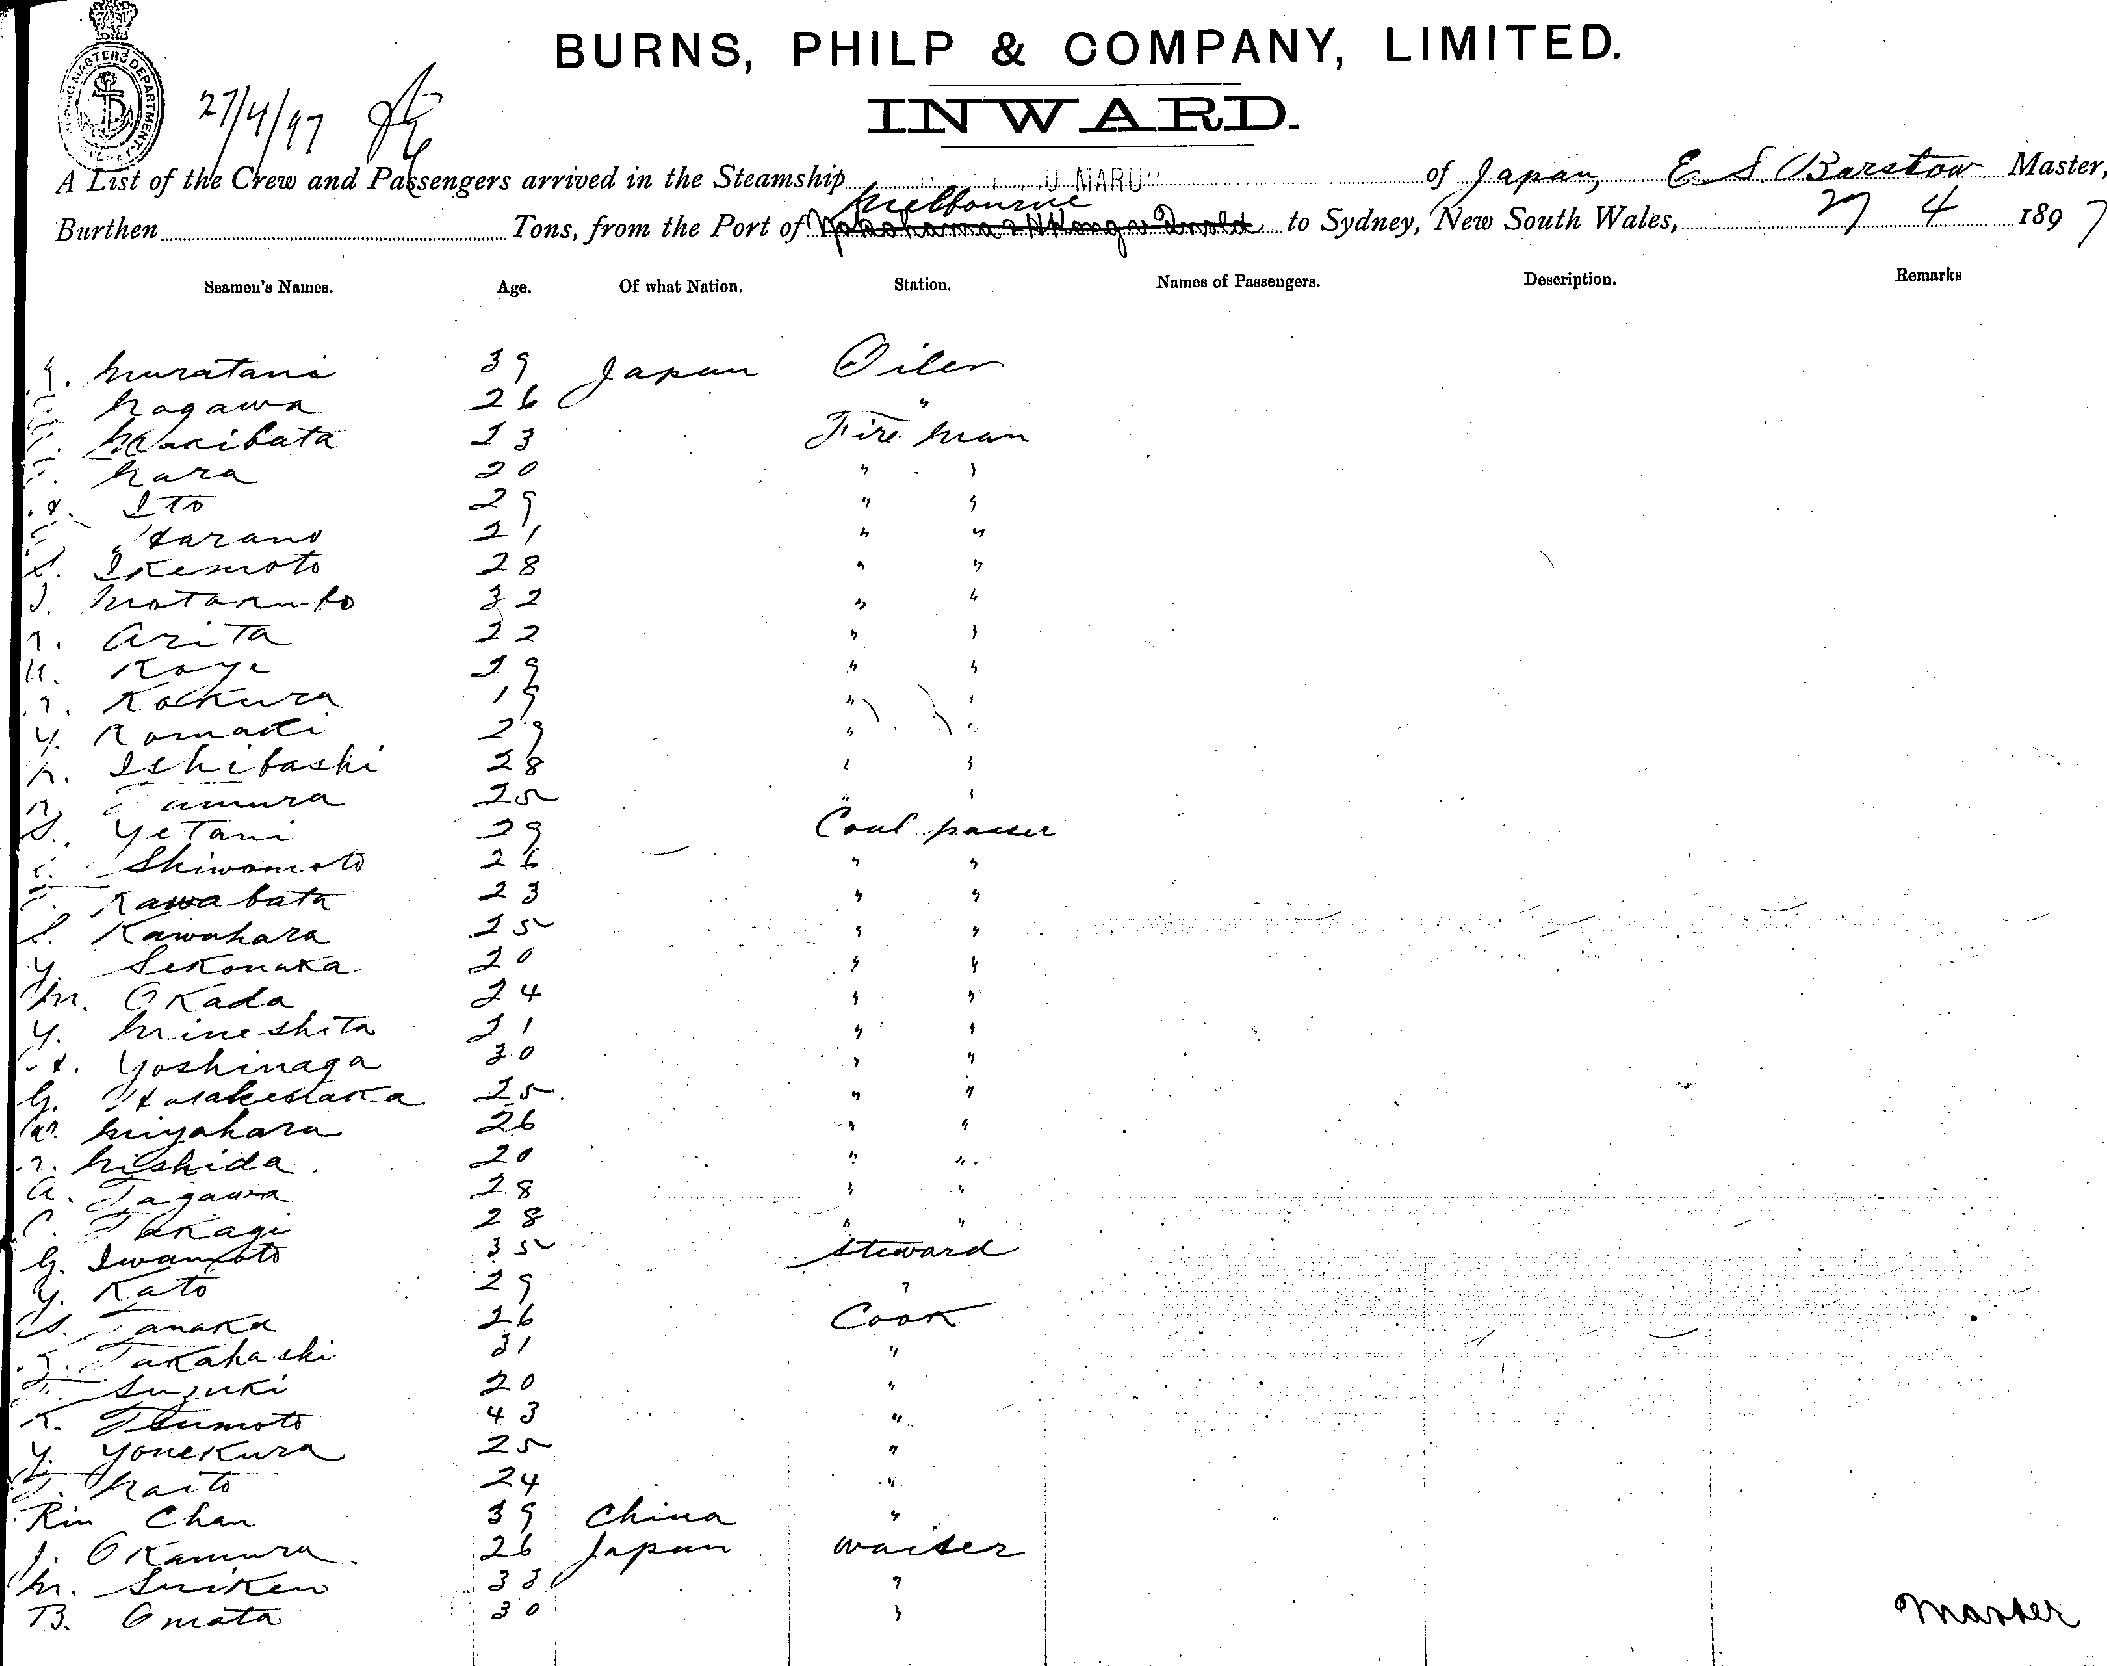 BURNS, PHILP & COMPANY, LIMITED.
INWARD.
27/4/97
A List of the Crew and Passengers arrived in the Steamship MARU of Japan, E. S. Barstow Master,
Melbourne
Burthen Tons, from the Port of Yokohama to Sydney, New South Wales, 27 4 1897
Seamen's Names. Age. Of what Nation. Station. Names of Passengers. Description. Remarks
Muratani 39 Japan Oiler
Nagawa 26 "
23 Fire man
Nara 20 " "
Ito 29 " "
Harano 21 " "
S. Ikemoto 28 " "
32 " "
Arita 22 " "
U. Koye 29 " "
Kokura 19 " "
Y. Komaki 29 " "
Ishibashi 28 " "
Tamura 25 " "
S. Yetani 29 Coal passer
Shiwamoto 26 " "
T. Kawabata 23 " "
S. Kawahara 25 " "
Y. Sekonaka 20 " "
M. Okada 24 " "
Y. Mineshita 21 " "
Yoshinaga 30 " "
G. 25 " "
Miyahara 26 " "
Nishida 20 " "
A. Tagawa 28 " "
Takagi 28 " "
G. Iwamoto 35 Steward
Y. Kato 29 "
S. Tanaka 26 Cook
Takahashi 31 "
Suzuki 20 "
K. Tsumoto 43 "
Y. Yonekura 25 "
T. Naito 24 "
Rin Chan 39 China "
J. Okamura 26 Japan waiter
M. Suiken 33 "
B. Omata 30 "
Master